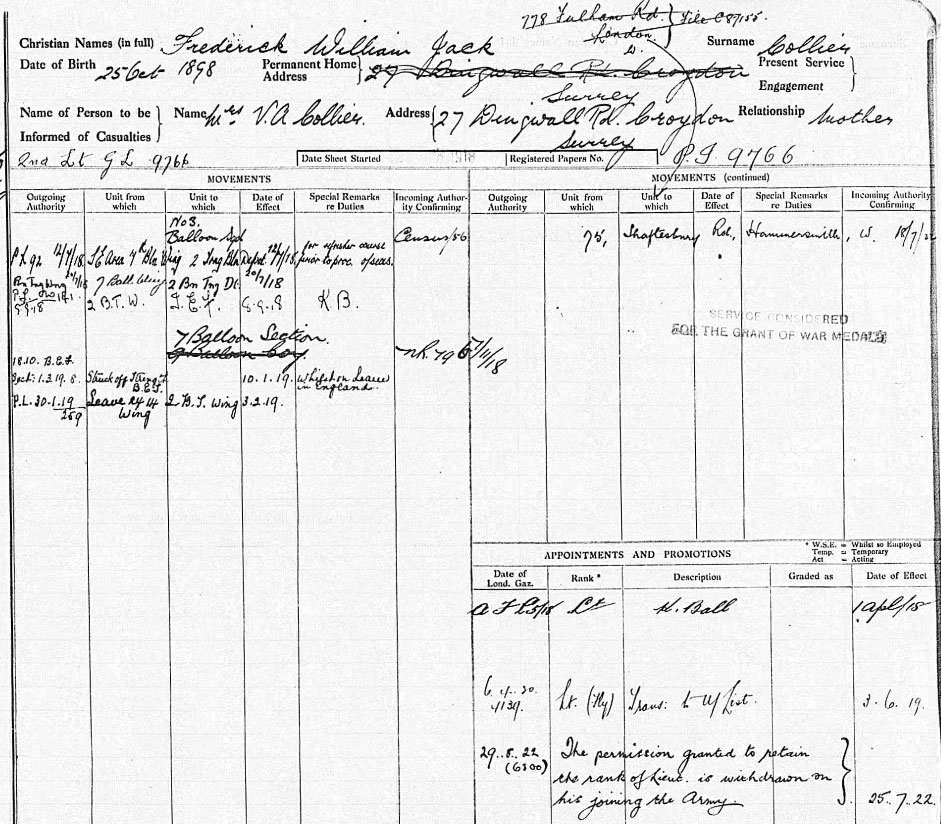 778 Fulham Rd. } File C87155.
London
Christian Names (in full) Frederick William Jack Surname Collier
Date of Birth 25 Oct 1898 Permanent Home Address 27 Dingwall Rd. Croydon Surrey Present Service Engagement
Name of Person to be Informed of Casualties Name Mrs V.A Collier. Address 27 Dingwall Rd. Croydon Surrey Relationship Mother
2nd Lt G L 9766 Date Sheet Started Registered Papers No. P.I 9766
MOVEMENTS MOVEMENTS (continued)
Outgoing Authority Unit from which Unit to which Date of Effect Special Remarks re Duties Incoming Authority Confirming Outgoing Authority Unit from which Unit to which Date of Effect Special Remarks re Duties Incoming Authority Confirming
No 3.
Balloon Census/56 75, Shaftesbury Rd, Hammersmith, W.
P L 92 12/7/18. Area 7 Wing 2 Depot 12/7/18. for refresher course prior to proc. overseas.
7 Ball. Wing 2 Bn Tng 20/7/18
5.9.18 2 B.T.W. K B.
SERVICE CONSIDERED
FOR THE GRANT OF WAR MEDALS
7 Balloon Section.
9 Balloon Coy
18.10. B.E.F. 5/11/18
1.3.19. Struck off Strength B.E.F. 10.1.19. Whilst on Leave in England.
P.L. 30.1.19 259 Leave Wing Wing 3.2.19.
APPOINTMENTS AND PROMOTIONS
* W.S.E. = Whilst so Employed
Temp. = Temporary
Act = Acting
Date of Lond. Gaz. Rank * Description Graded as Date of Effect
Lt K. Ball 1 Apl/18
6.4.20. 4139. Lt. Trans: to U/List. 3.6.19.
29.8.22 The permission granted to retain
(6300) the rank of Lieut. is withdrawn on
his joining the Army. 25.7.22.